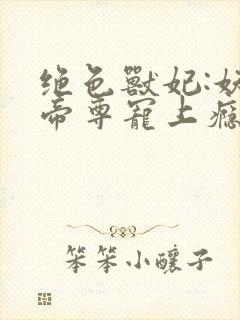 绝色獸妃:妖
帝尊寵上癮
笨笨小釀子